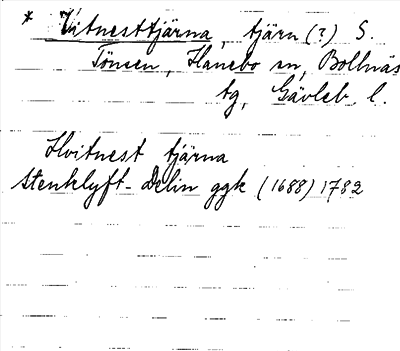 * Vitnesttjärna, tjärn (?) S.
Tönsen, Hanebo sn, Bollnäs
tg, Gävleb. l.
Hvitnest tjärna
Stenklyft-Delin ggk (1688) 1782